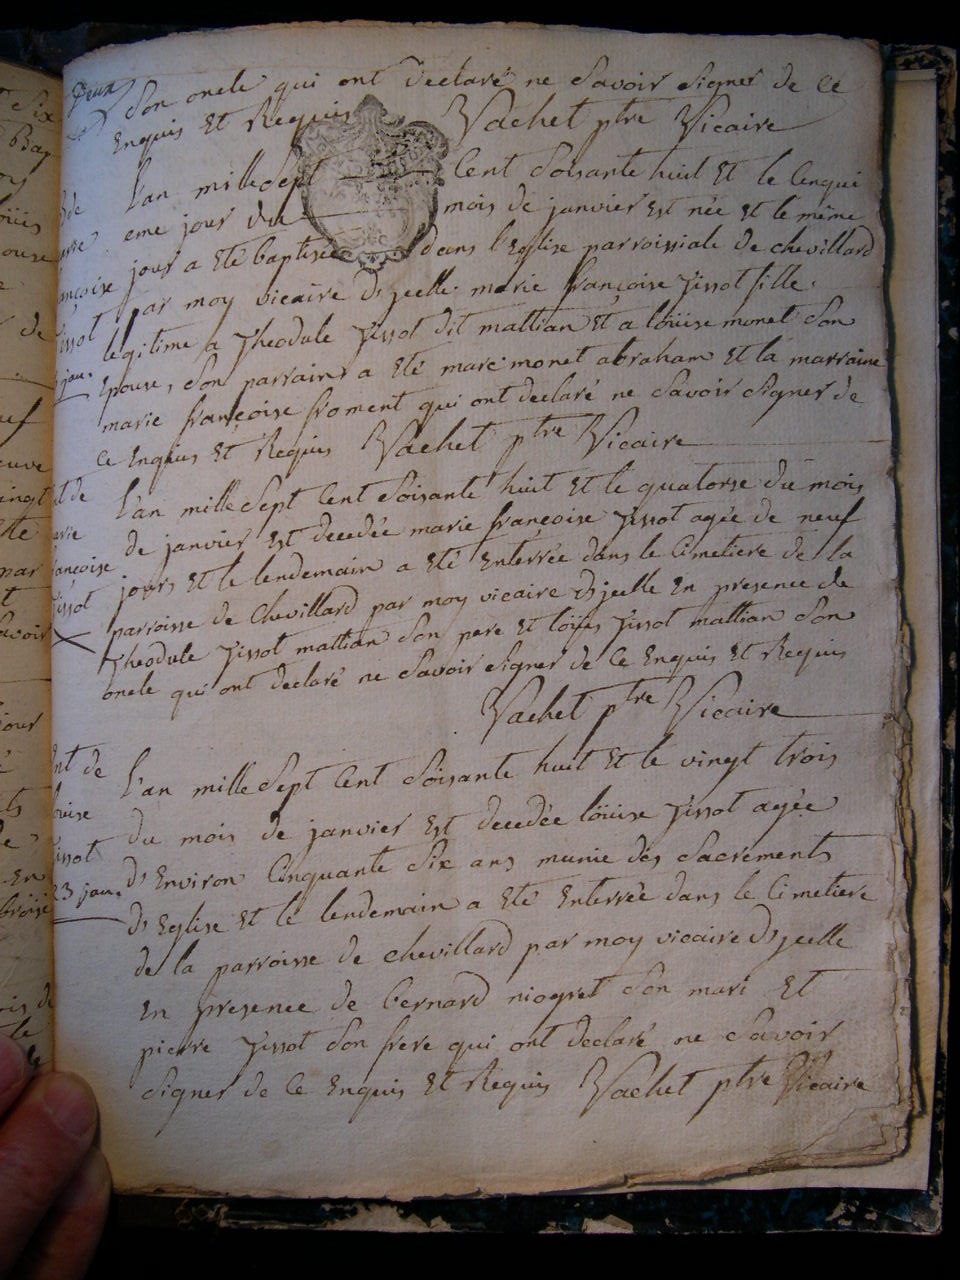 Deux
Son oncle qui ont declaré ne Savoir signer de Ce
Enquis Et Requis Vachet ptre Vicaire
L'an mille Sept Cent Soisante huit Et le Cinqui
eme jour du mois de janvier Est née et le même
jour a Eté baptisée dans l'Eglise parroissiale de chevillard
par moy vicaire D'jcelle marie françoise jissot fille
legitime a Theodule jissot dit mattian Et a loüise monet Son
Epouse, Son parrains a Eté marc monet abraham Et la marraine
marie françoise froment qui ont declaré ne Savoir Signer de
Ce Enquis Et Requis Vachet ptre Vicaire
L'an mille Sept Cent Soisante huit Et le quatorse du mois
de janvier Est decedée marie françoise jissot agée de neuf
jours Et le lendemain a Eté Enterrée dans le Cimetiere de la
parroisse de Chevillard par moy vicaire D'jcelle En presence de
Theodule jissot mattian Son pere Et loüis jissot mattian Son
oncle qui ont declaré ne Savoir Signer de Ce Enquis Et Requis
Vachet ptre Vicaire
L'an mille Sept Cent Soisante huit Et le vingt trois
du mois de janvier Est decedée loüise jissot agée
D'Environ Cinquante Six ans munie des Sacrements
D'Eglise Et le lendemain a Eté Enterrée dans le Cimetiere
de la parroisse de chevillard par moy vicaire D'jcelle
En presence de bernard niogret Son mari Et
pierre jissot Son frere qui ont declaré ne Savoir
Signer de Ce Enquis Et Requis Vachet ptre Vicaire